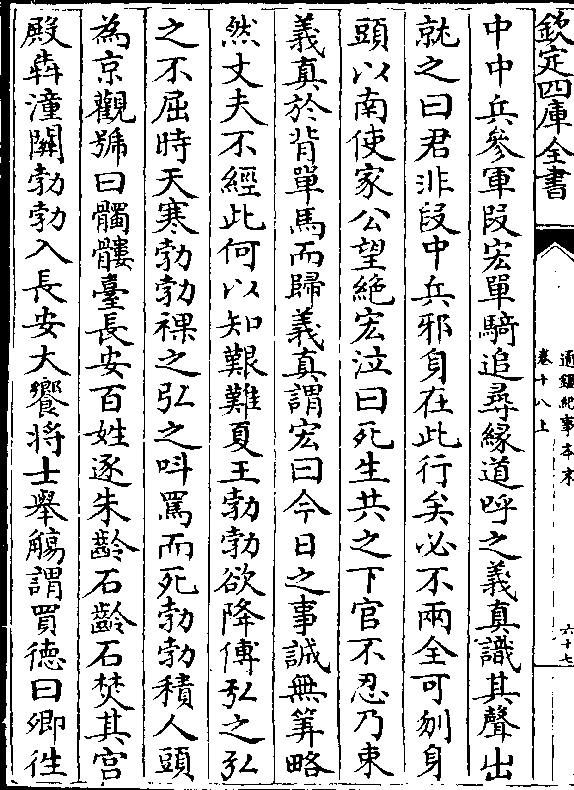 欽定四庫全書
通鑑紀事本末
卷十八上
六十七
中中兵參軍段宏單騎追尋緣道呼之義真識其聲出
就之曰君非段中兵邪身在此行矣必不兩全可刎身
頭以南使家公望絕宏泣曰死生共之下官不忍乃束
義真於背單馬而歸義真謂宏曰今日之事誠無筭略
然丈夫不經此何以知艱難夏王勃勃欲降傅弘之弘
之不屈時天寒勃勃裸之弘之叫罵而死勃勃積人頭
為京觀號曰髑髏臺長安百姓逐朱齡石齡石焚其宮
殿犇潼關勃勃入長安大饗將士舉觴謂買德曰卿徃